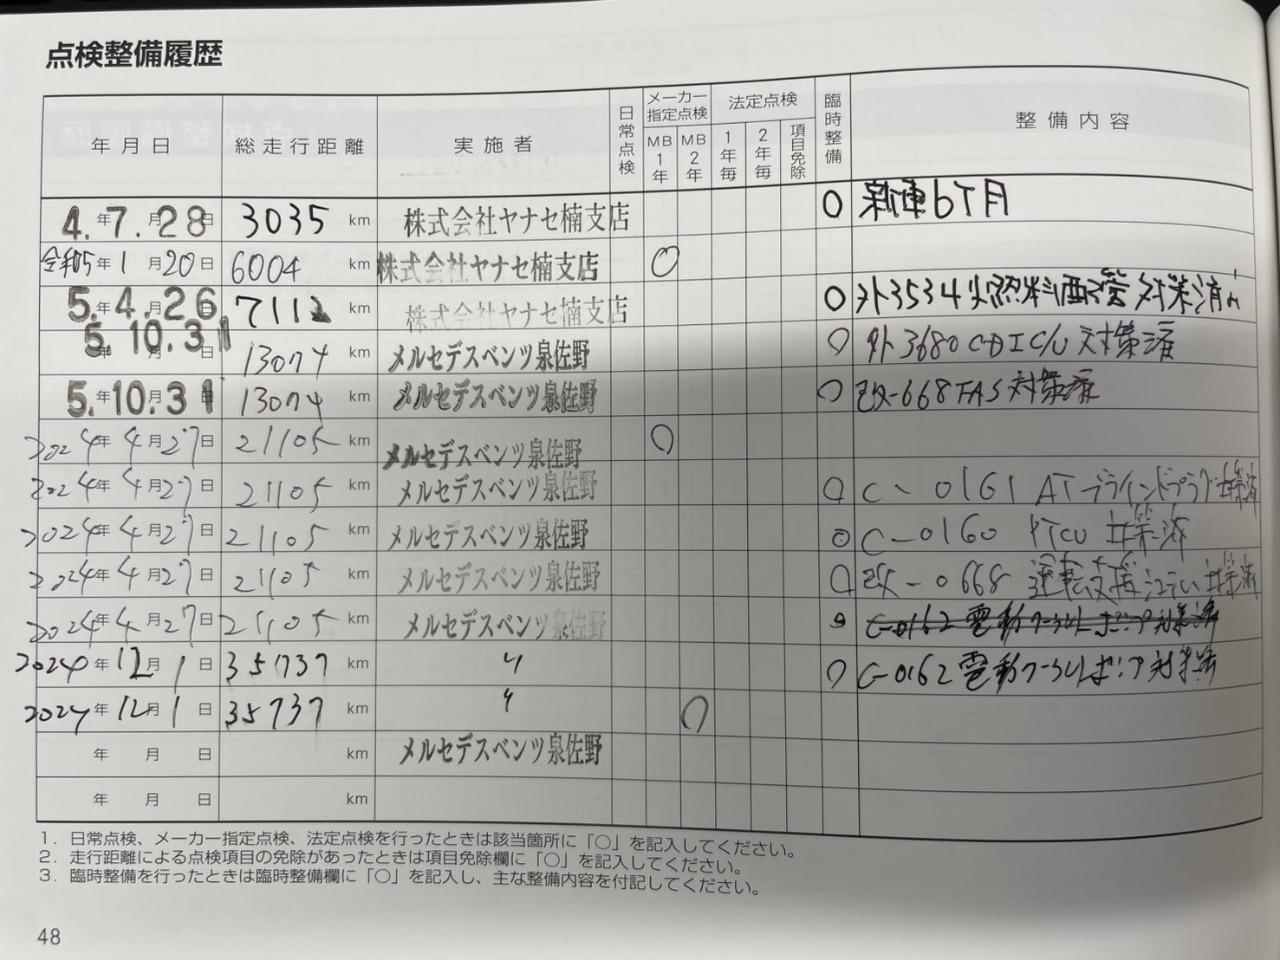 点検整備履歴
年月日 総走行距離 実施者 日常点検 メーカー指定点検 MB1年 MB2年 法定点検 1年毎 2年毎 項目免除 臨時整備 整備内容
4.年7.月28日 3035 km 株式会社ヤナセ楠支店 ○ 新車6ヶ月
令和5年1月20日 6004 km 株式会社ヤナセ楠支店 ○
5.年4.月26日 7112 km 株式会社ヤナセ楠支店 ○ 外3534 燃料配管 対策済
5.年10.月31日 13074 km メルセデスベンツ泉佐野 ○ 外3680 CDI C/U 対策済
5.年10.月31日 13074 km メルセデスベンツ泉佐野 ○ 改-668 FAS 対策済
2024年4月27日 21105 km メルセデスベンツ泉佐野 ○
2024年4月27日 21105 km メルセデスベンツ泉佐野 ○ C-0161 ATブラインドプラグ対策済
2024年4月27日 21105 km メルセデスベンツ泉佐野 ○ C-0160 PTCU 対策済
2024年4月27日 21105 km メルセデスベンツ泉佐野 ○ 改-0668 運転支援 対策済
2024年4月27日 21105 km メルセデスベンツ泉佐野 C-0162 電動クーラントポンプ対策済
2024年12月1日 35737 km 〃 ○ C-0162 電動クーラントポンプ対策済
2024年12月1日 35737 km 〃 ○
年 月 日 km メルセデスベンツ泉佐野
年 月 日 km
1. 日常点検、メーカー指定点検、法定点検を行ったときは該当箇所に「○」を記入してください。
2. 走行距離による点検項目の免除があったときは項目免除欄に「○」を記入してください。
3. 臨時整備を行ったときは臨時整備欄に「○」を記入し、主な整備内容を付記してください。
48